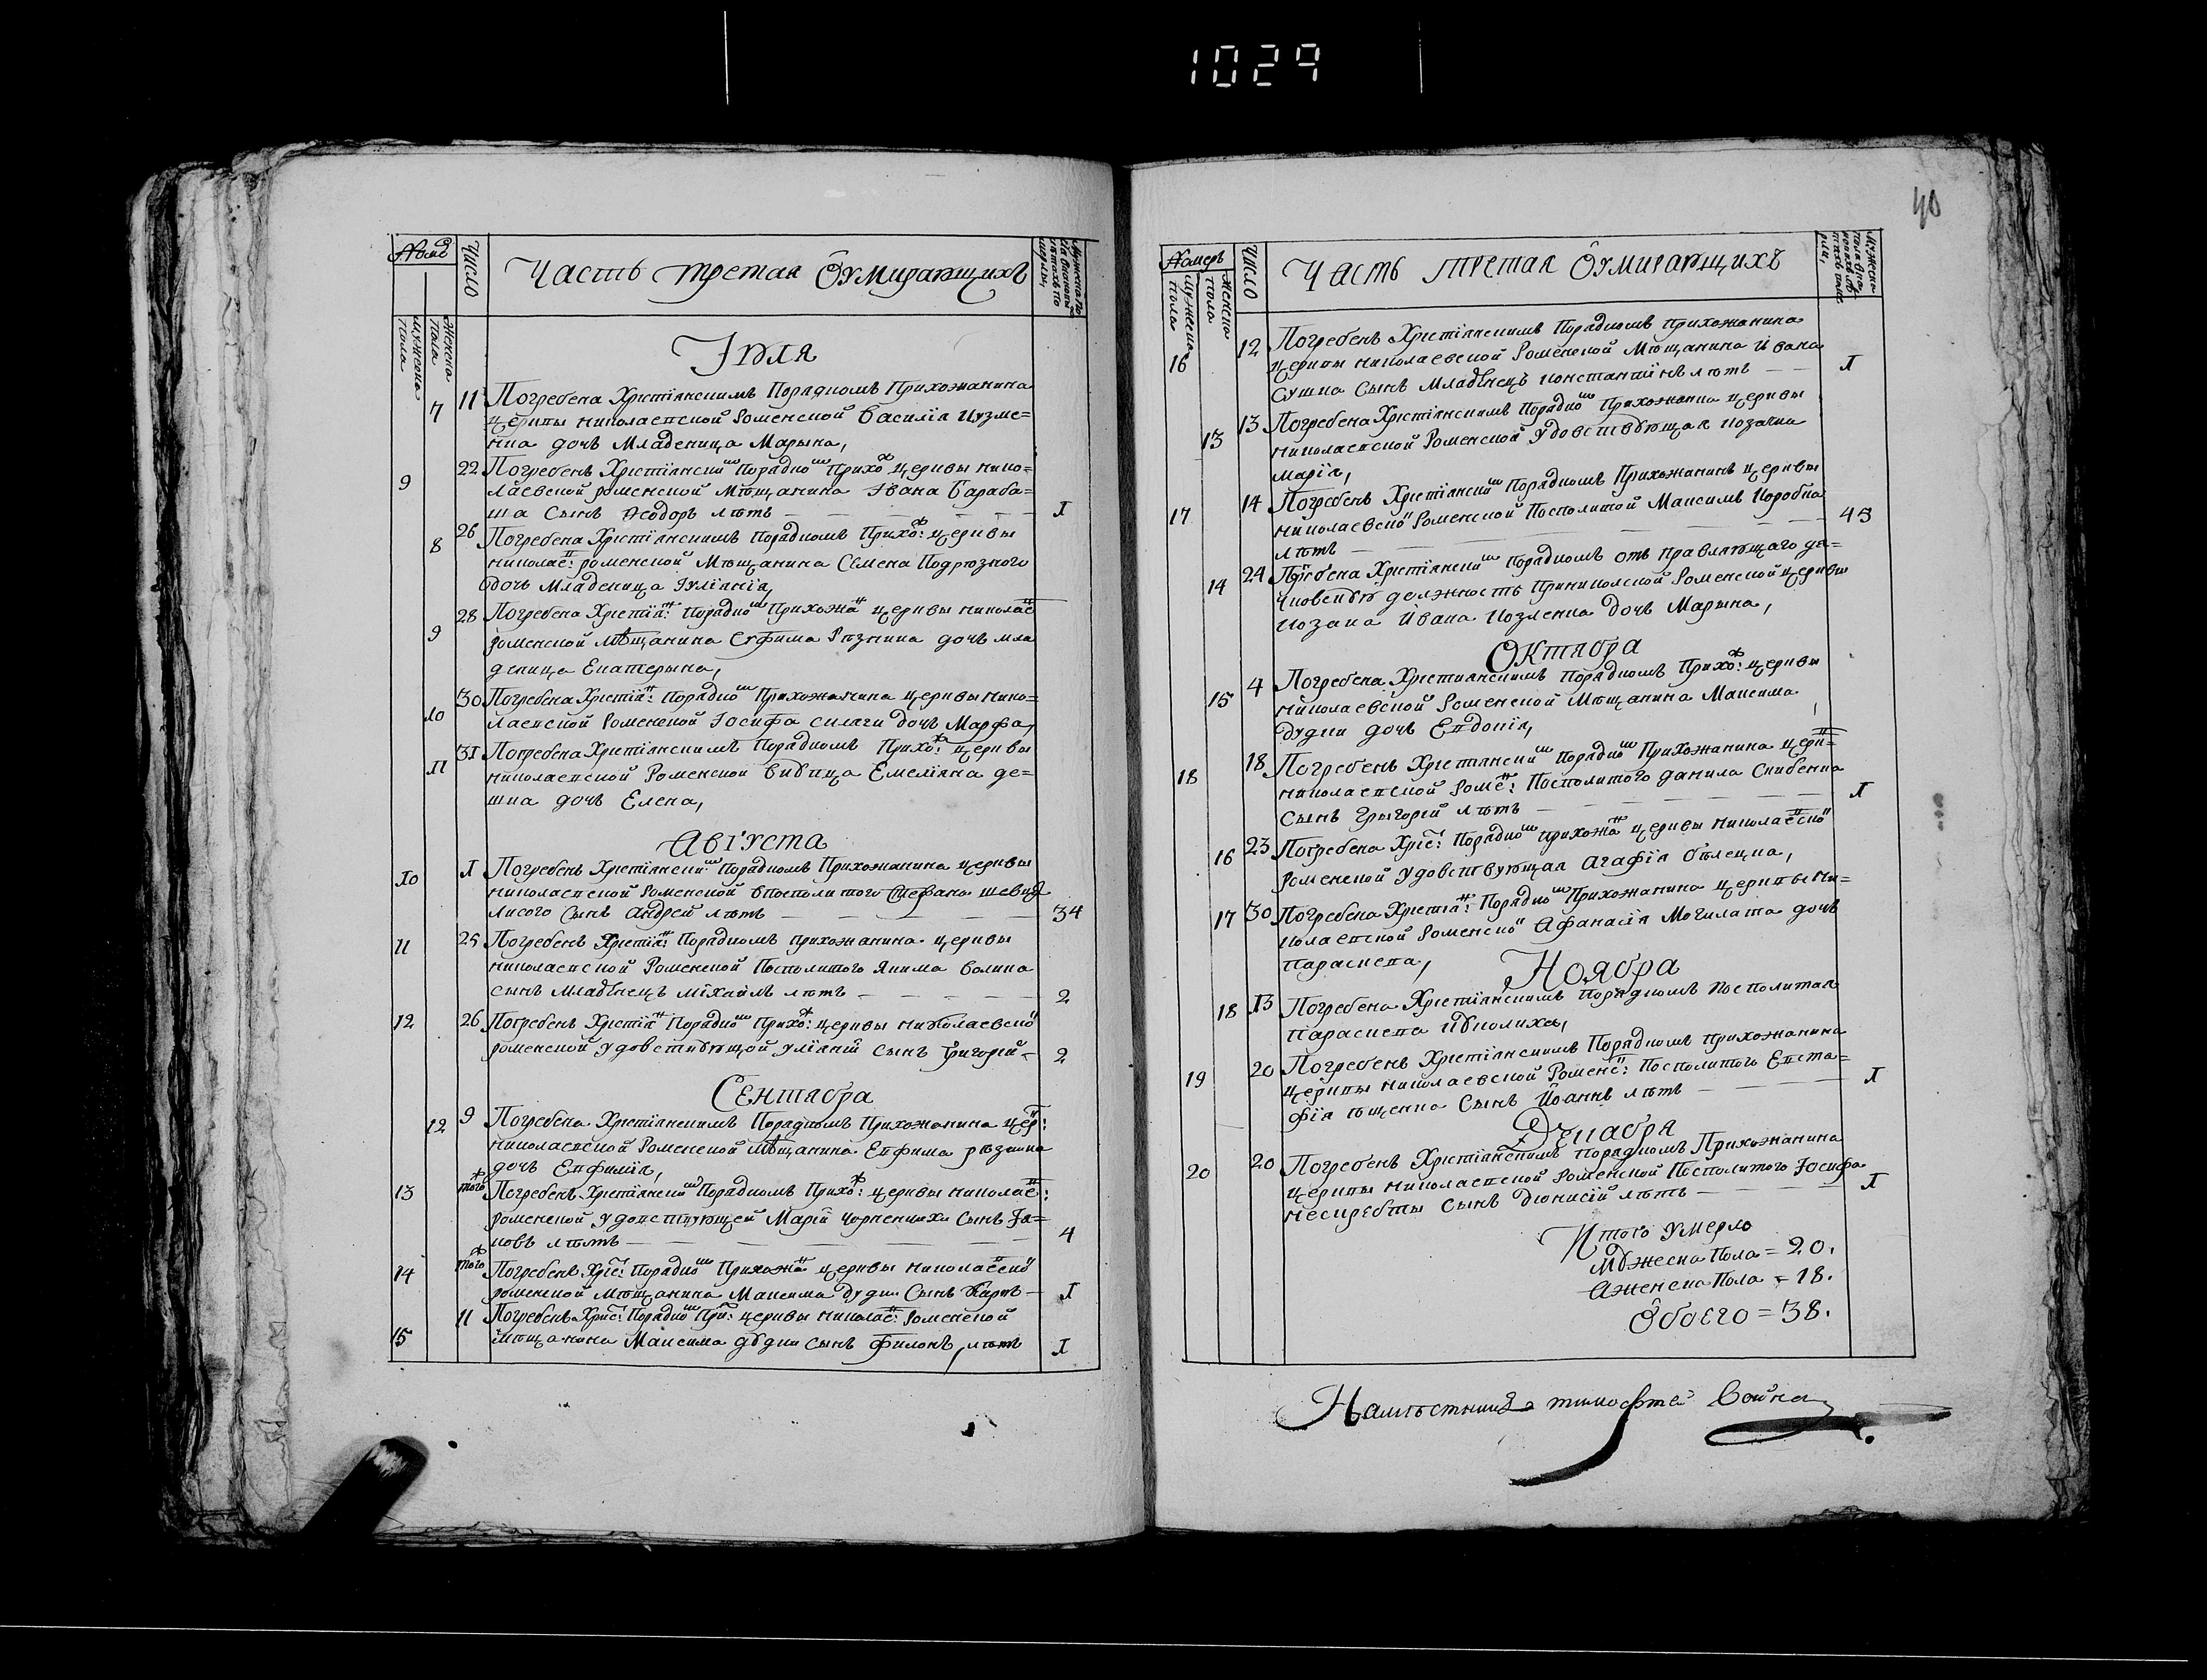 1029
40
Номе Число Часть третая О умирающихъ
мужеска пола женска пола
Іюля
7 11 Погребена Христіянскимъ Порядкомъ Прихожанина
церкви николаевской Роменской Василія Кузме-
нка дочь Младеница Марына,
9 22 Погребенъ Христіянски порядко прихо церкви нико-
лаевской роменской мѣщанина Івана Бараба-
ша Сынъ Феодоръ лѣтъ 1
8 26 Погребена Христіянскимъ порядкомъ Прихо: церкви
николае: роменской Мѣщанина Семена Подрюзного
дочь Младеница Іуліянія,
9 28 Погребена Христія: порядко Прихожа церкви николае
роменской мѣщанина Евфима Рѣзника дочь мла
деница Екатерына,
10 30 Погребена Христія: порядко Прихожанина церкви нико-
лаевской Роменской Іосифа силаги дочь Марфа,
11 31 Погребена Христіянскимъ порядкомъ Прихо: церкви
николаевской Роменской вдовца Емеліяна де-
шка дочь Елена,
Августа
10 1 Погребенъ Христіянски порядкомъ Прихожанина церкви
николаевской Роменской Посполитого Стефана шевця
Лисого Сынъ Андрей лѣтъ 34
11 25 Погребенъ Христія: Порядкомъ прихожанина церкви
николаевской Роменской Посполитого Якима волика
сынъ младѣнецъ міхаилъ лѣтъ 2
12 26 Погребенъ Христія Порядко прихо: церкви николаевско
роменской удовствующой уліянїи сынъ Григорій 2
Сентября
12 9 Погребена Христіянскимъ Порядкомъ Прихожанина цер:
николаевской Роменской мѣщанина Евфима рѣзника
дочь Евфимія,
13 того Погребенъ Христіянски Порядкомъ Прихо: церкви николае:
роменской удовствующей Маріи Чорненкихи Сынъ Іа-
ковъ лѣтъ 4
14 того Погребенъ Хріс: порядко Прихожа церкви николаевско
роменской мѣщанина Максима дудки Сынъ Карпъ 1
15 11 Погребенъ Хрис: Порядко При: церкви николае: Роменской
мѣщанина Максима дудки сынъ Филонъ, лѣтъ 1
Номеръ Число Часть третая О умирающихъ
мужеска пола женска пола
16 12 Погребенъ Христіянскимъ Порядкомъ прихожанина
церкви николаевской Роменской Мѣщанина Ивана
Сушка Сынъ Младѣнецъ константінъ лѣтъ 1
13 13 Погребена Христіянскимъ Порядко Прихожанка церкви
николаевской Роменской удовствующая козачка
Марія,
17 14 Погребенъ Христіянски порядкомъ Прихожанинъ церкви
николаевско Роменской Посполитой Максимъ Коробка
лѣтъ 43
14 24 Погребена Христіянски порядкомъ отъ правляющаго дя-
чковскую должность Приникольской Роменской церкви
козака Ивана Козленка дочь Марына,
Октября
15 4 Погребена Христианскимъ порядкомъ Прихо: церкви
николаевской Роменской Мѣщанина Максима
дудки дочь Евдокія,
18 18 Погребенъ Христіянски порядко Прихожанина церк-
николаевской Роме: Посполитого данила Скибенка
Сынъ Григорій лѣтъ 1
16 23 Погребена Хріс: Порядко прихожа церкви николаевско
Роменской удовствующая Агафія Бѣлецка,
17 30 Погребена Христіа: Порядко Прихожанина церкви ни-
колаевской Роменско Афанасія Могилата дочь
Параскева,
Ноября
18 13 Погребена Христіянскимъ порядкомъ посполитая
Параскева Куколиха,
19 20 Погребенъ Христіянскимъ Порядкомъ прихожанина
церкви николаевской Роменс: Посполитого Евста-
фія ѣщенка Сынъ Иоаннъ лѣтъ 1
Декабря
20 20 Погребенъ Христіянскимъ порядкомъ Прихожанина
церкви николаевской Роменской Посполитого Іосифа
нескребты Сынъ Діонисій лѣтъ 1
Итого умерло
Мужеска Пола = 20.
Аженска Пола = 18.
Обоего = 38.
Намѣстникъ тимофтей Война